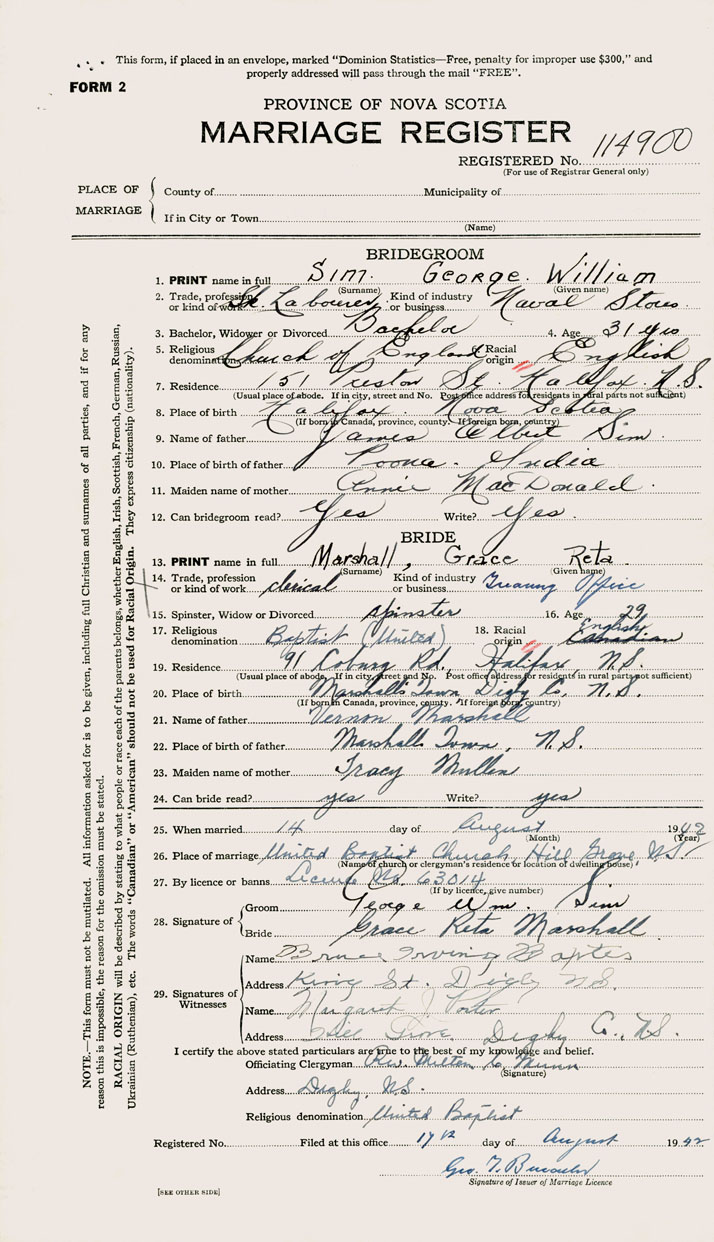 This form, if placed in an envelope, marked "Dominion Statistics—Free, penalty for improper use $300," and
properly addressed will pass through the mail "FREE".
FORM 2
PROVINCE OF NOVA SCOTIA
MARRIAGE REGISTER
REGISTERED No. 114900
(For use of Registrar General only)
PLACE OF MARRIAGE
County of Municipality of
If in City or Town
(Name)
BRIDEGROOM
1. PRINT name in full Sim. George. William
(Surname) (Given name)
2. Trade, profession or kind of work Labourer Kind of industry or business Naval Stores
3. Bachelor, Widower or Divorced Bachelor 4. Age 31 yrs
5. Religious denomination Church of England 6. Racial origin English
7. Residence 151 Preston St. Halifax N.S.
(Usual place of abode. If in city, street and No. Post office address for residents in rural parts not sufficient)
8. Place of birth Halifax. Nova Scotia
(If born in Canada, province, county. If foreign born, country)
9. Name of father James Albert Sim
10. Place of birth of father Poona. India
11. Maiden name of mother Annie MacDonald.
12. Can bridegroom read? Yes Write? Yes.
BRIDE
13. PRINT name in full Marshall, Grace Reta
(Surname) (Given name)
14. Trade, profession or kind of work clerical Kind of industry or business Office
15. Spinster, Widow or Divorced spinster 16. Age 29
17. Religious denomination Baptist (United) 18. Racial origin English Canadian
19. Residence 91 Coburg Rd., Halifax, N.S.
(Usual place of abode. If in city, street and No. Post office address for residents in rural parts not sufficient)
20. Place of birth Marshalls Town Digby Co. N.S.
(If born in Canada, province, county. If foreign born, country)
21. Name of father Vernon Marshall
22. Place of birth of father Marshalls Town, N.S.
23. Maiden name of mother Tracy Mullen
24. Can bride read? yes Write? yes
25. When married 14 day of August 1942
(Month) (Year)
26. Place of marriage United Baptist Church, Hill Grove, N.S.
(Name of church or clergyman's residence or location of dwelling house)
27. By licence or banns License No. 63014
(If by licence, give number)
28. Signature of
Groom George Wm. Sim
Bride Grace Reta Marshall
29. Signatures of Witnesses
Name Bruce Irving
Address King St. Digby N.S.
Name Margaret J. Porter
Address Hill Grove, Digby Co., N.S.
I certify the above stated particulars are true to the best of my knowledge and belief.
Officiating Clergyman Rev. Milton G. Munn
(Signature)
Address Digby, N.S.
Religious denomination United Baptist
Registered No. Filed at this office 17th day of August 1942
Geo. T.
Signature of Issuer of Marriage Licence
[SEE OTHER SIDE]
NOTE.—This form must not be mutilated. All information asked for is to be given, including full Christian and surnames of all parties, and if for any
reason this is impossible, the reason for the omission must be stated.
RACIAL ORIGIN will be described by stating to what people or race each of the parents belongs, whether English, Irish, Scottish, French, German, Russian,
Ukrainian (Ruthenian), etc. The words "Canadian" or "American" should not be used for Racial Origin. They express citizenship (nationality).